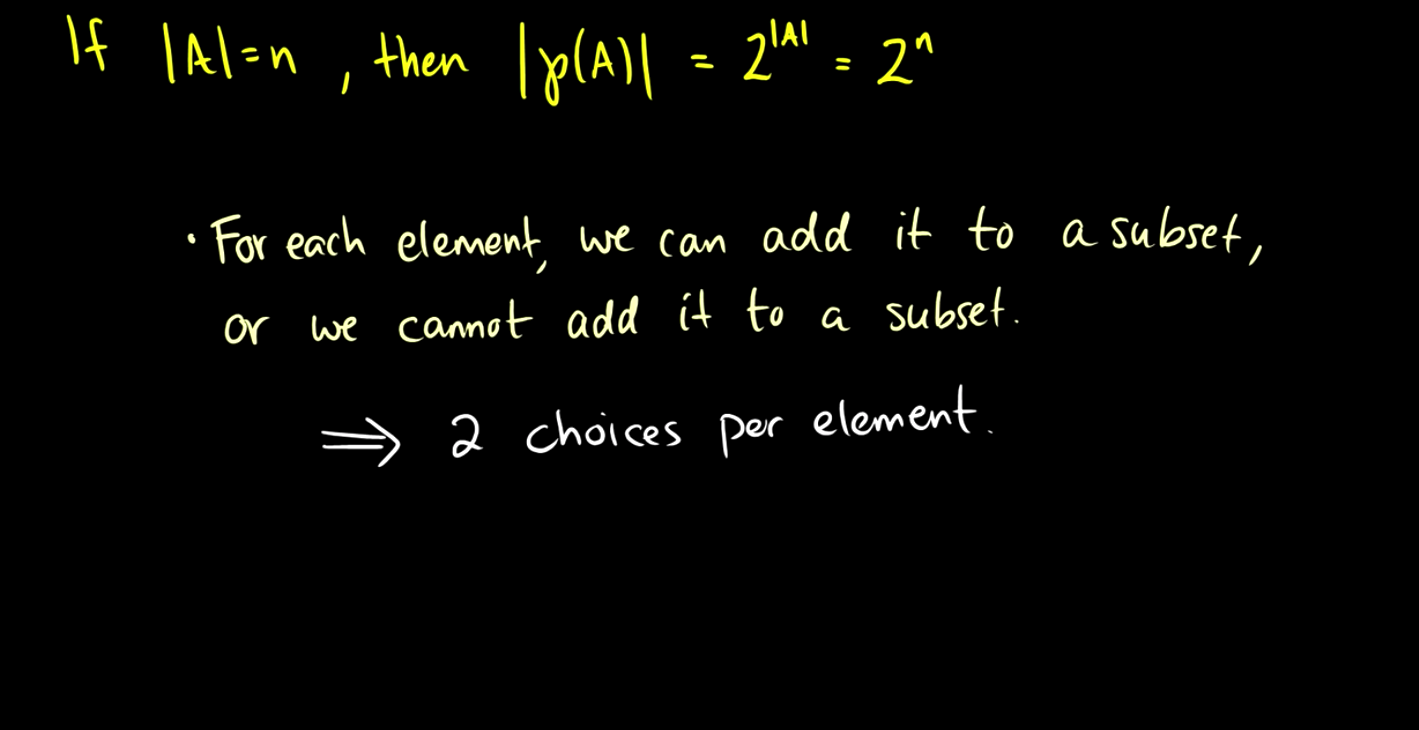 If |A|=n, then |℘(A)| = 2^|A| = 2^n
• For each element, we can add it to a subset,
or we cannot add it to a subset.
⟹ 2 choices per element.